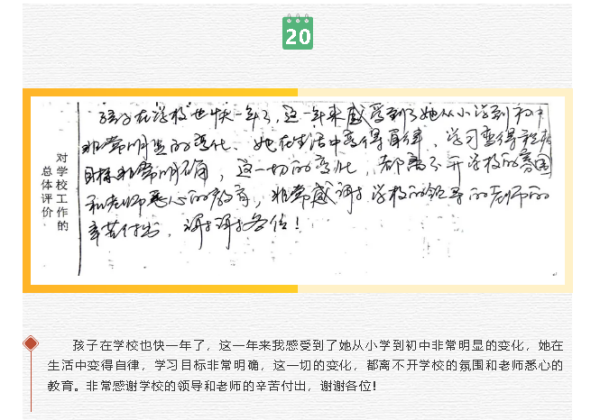 20
对学校工作的
总体评价
孩子在学校也快一年了，这一年来感受到了她从小学到初中
非常明显的变化、她在生活中变得自律，学习变得积极
目标非常明确，这一切的变化，都离不开学校的氛围
和老师悉心的教育，非常感谢学校的领导的老师的
辛苦付出，谢谢各位！
孩子在学校也快一年了，这一年来我感受到了她从小学到初中非常明显的变化，她在
生活中变得自律，学习目标非常明确，这一切的变化，都离不开学校的氛围和老师悉心的
教育。非常感谢学校的领导和老师的辛苦付出，谢谢各位！